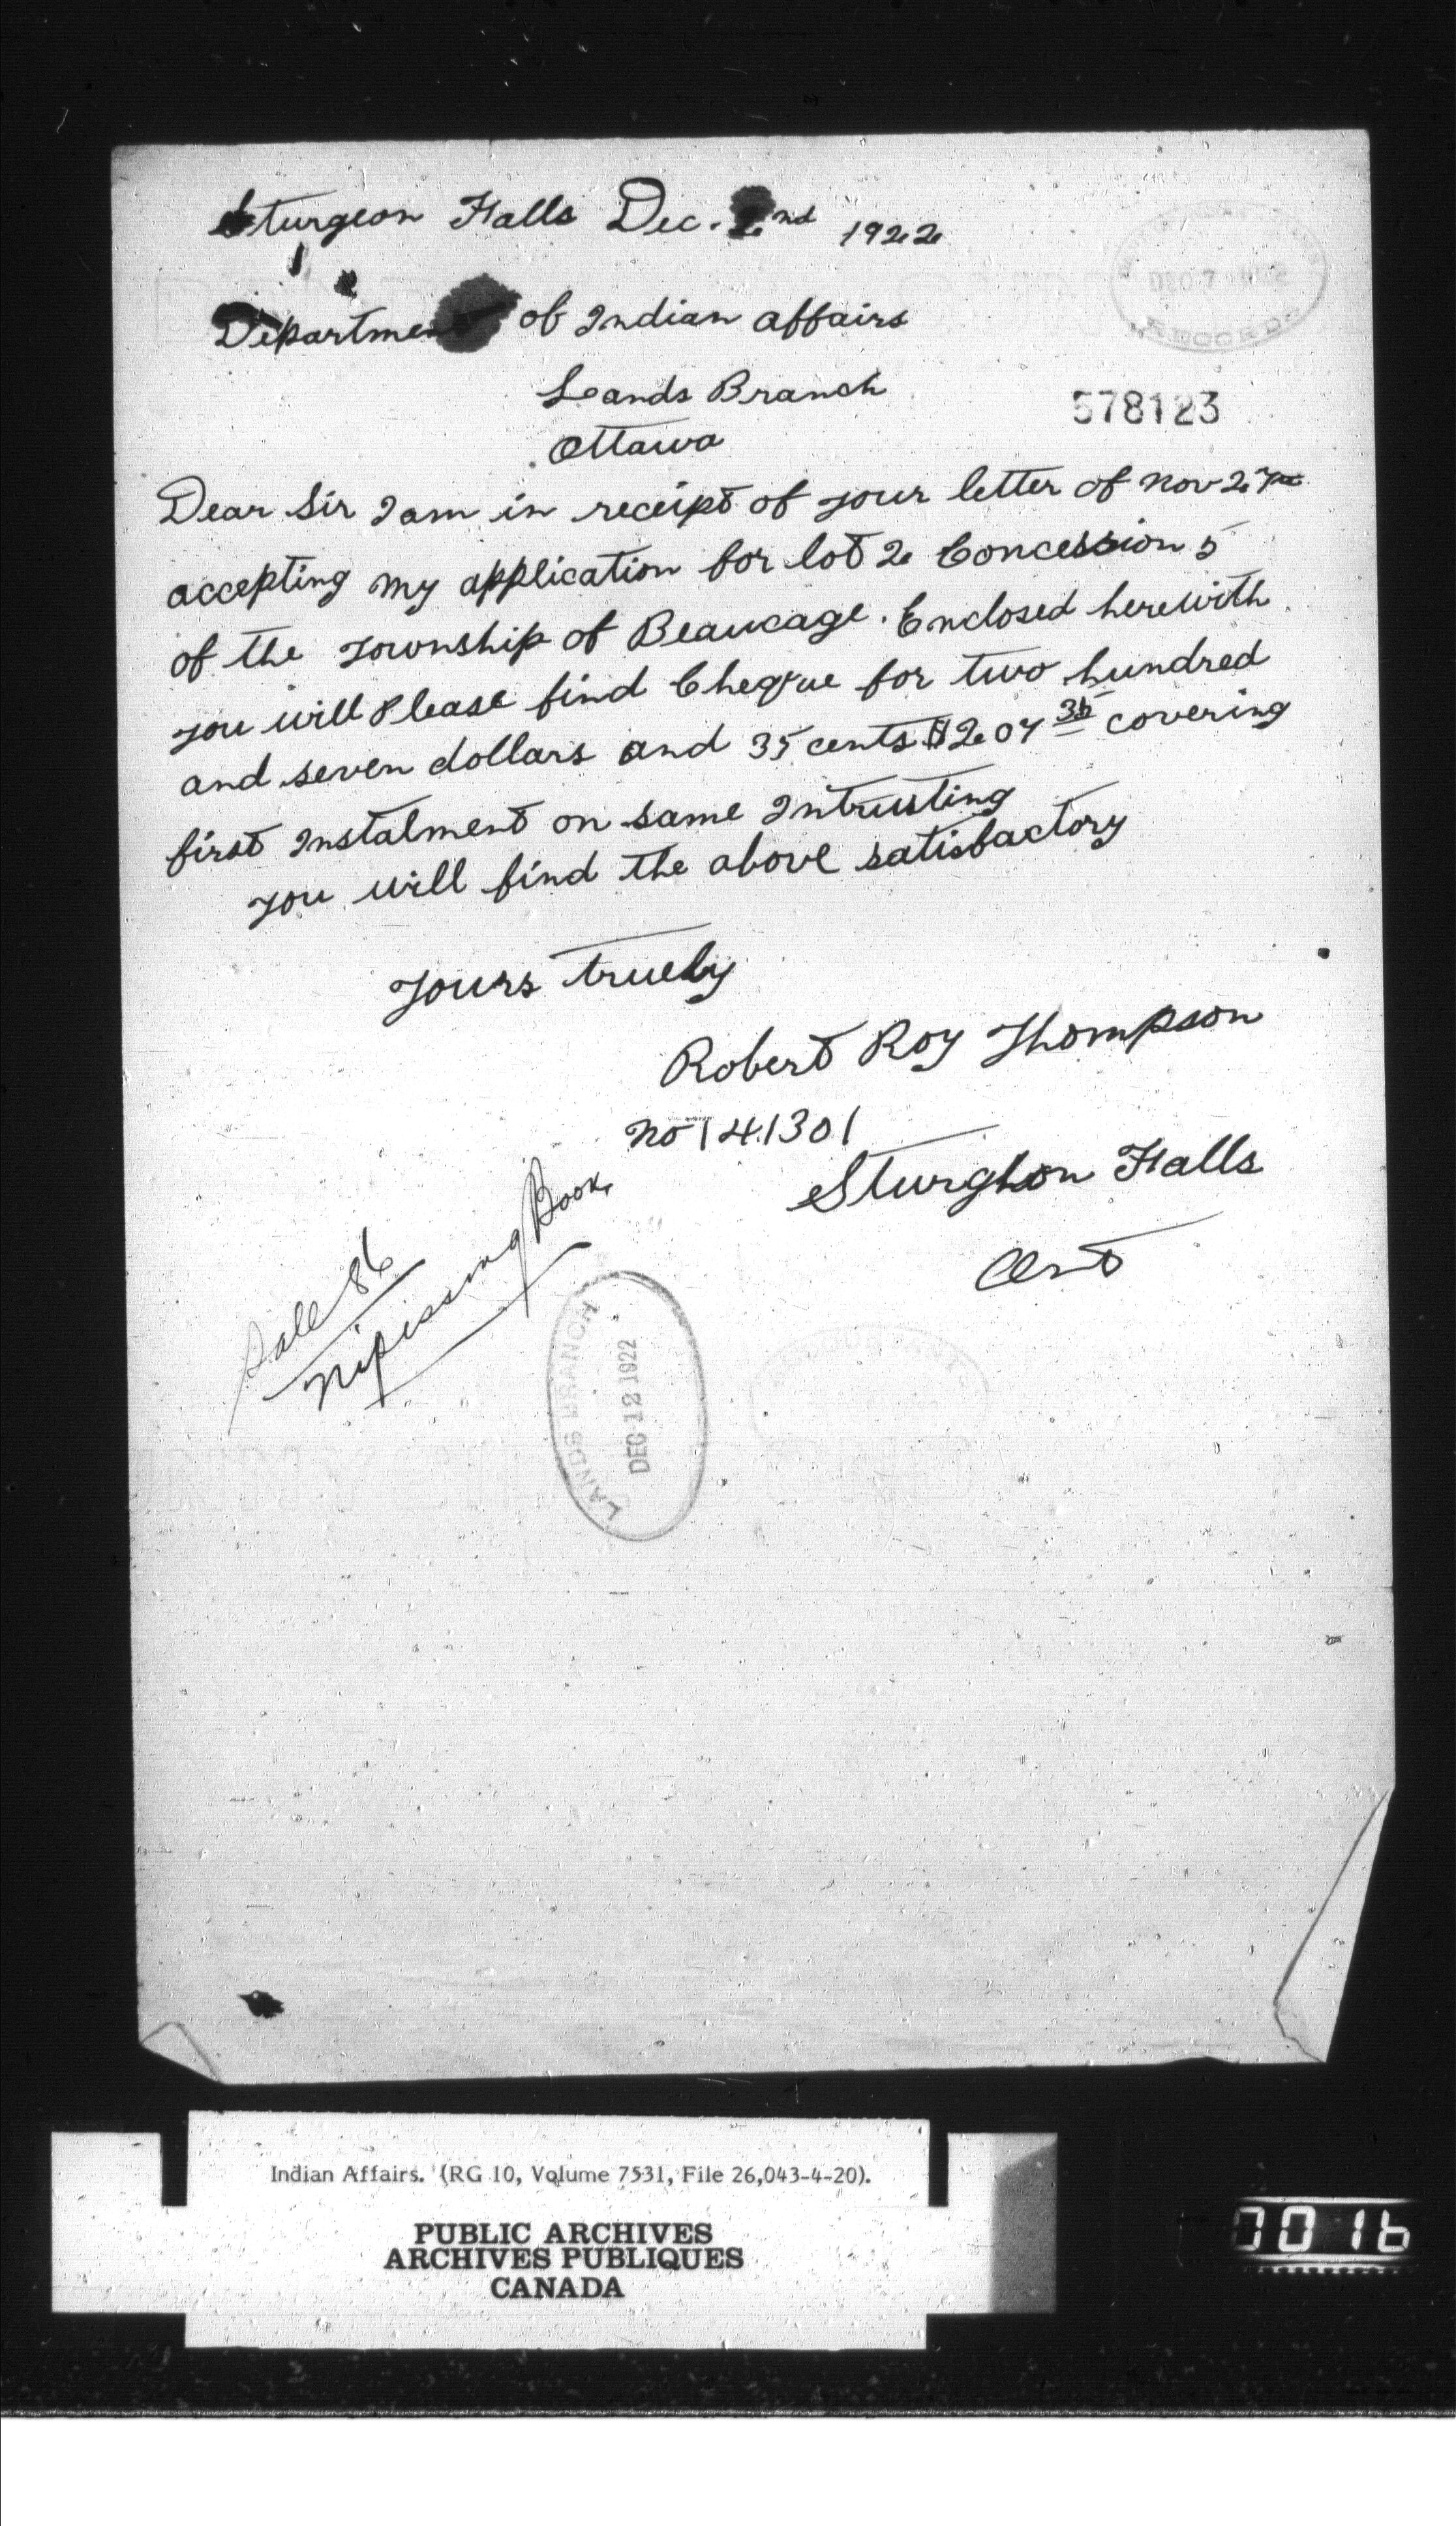 Sturgeon Falls Dec. 2nd 1922
DEC 7 1922
RECORDS
Department of Indian affairs
Lands Branch
578123
Ottawa
Dear Sir I am in receipt of your letter of Nov 27th
accepting my application for lot 2 Concession 5
of the Township of Beaucage. Enclosed herewith
you will Please find Cheqjue for two hundred
and seven dollars and 35 cents $207 35 covering
first Instalment on same Intrusting
you will find the above satisfactory
Yours truely
Robert Roy Thompson
No 141301
Sturgeon Falls
Ont
Sale 86
Nipissing Book
LANDS BRANCH
DEC 12 1922
Indian Affairs. (RG 10, Volume 7531, File 26,043-4-20).
PUBLIC ARCHIVES
ARCHIVES PUBLIQUES
CANADA
0016